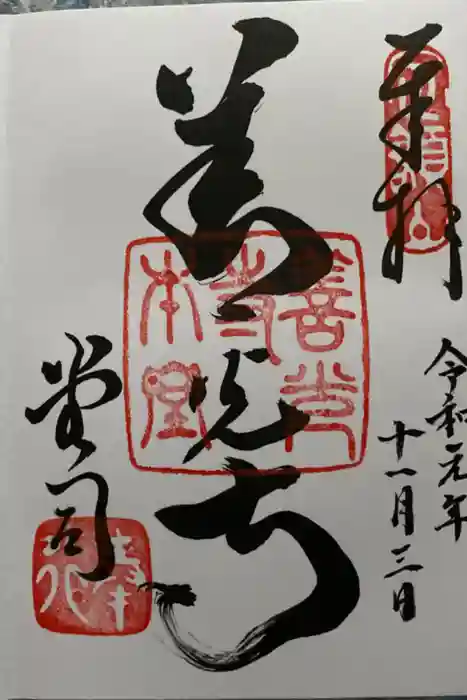 奉拝
令和元年
十一月三日
善光寺
善光寺本堂
堂司